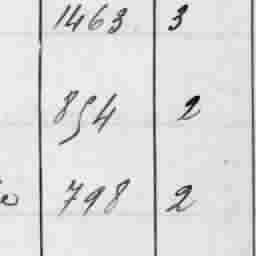 1463 3
854 2
798 2